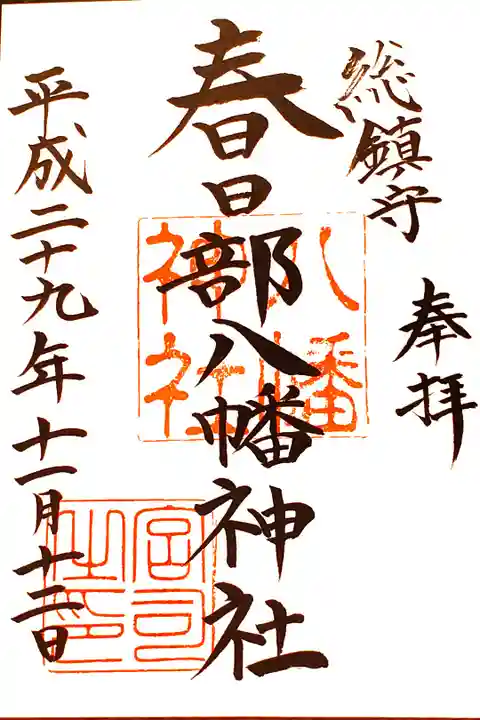 奉拝
総鎮守
春日部八幡神社
八幡
神社
宮司
之印
平成二十九年十一月十二日